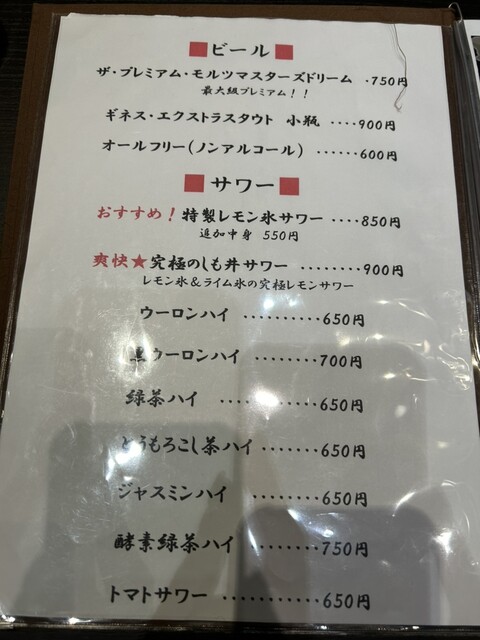 ■ビール■
ザ・プレミアム・モルツマスターズドリーム ・750円
最大級プレミアム！！
ギネス・エクストラスタウト 小瓶 ････900円
オールフリー(ノンアルコール) ･･････600円
■サワー■
おすすめ！特製レモン氷サワー ････850円
追加中身 550円
爽快★究極のしも丼サワー ････････900円
レモン氷＆ライム氷の究極レモンサワー
ウーロンハイ ･･････････650円
黒ウーロンハイ ･･･････700円
緑茶ハイ ････････････650円
とうもろこし茶ハイ･･･････650円
ジャスミンハイ ････････650円
酵素緑茶ハイ ････････750円
トマトサワー ････････････650円